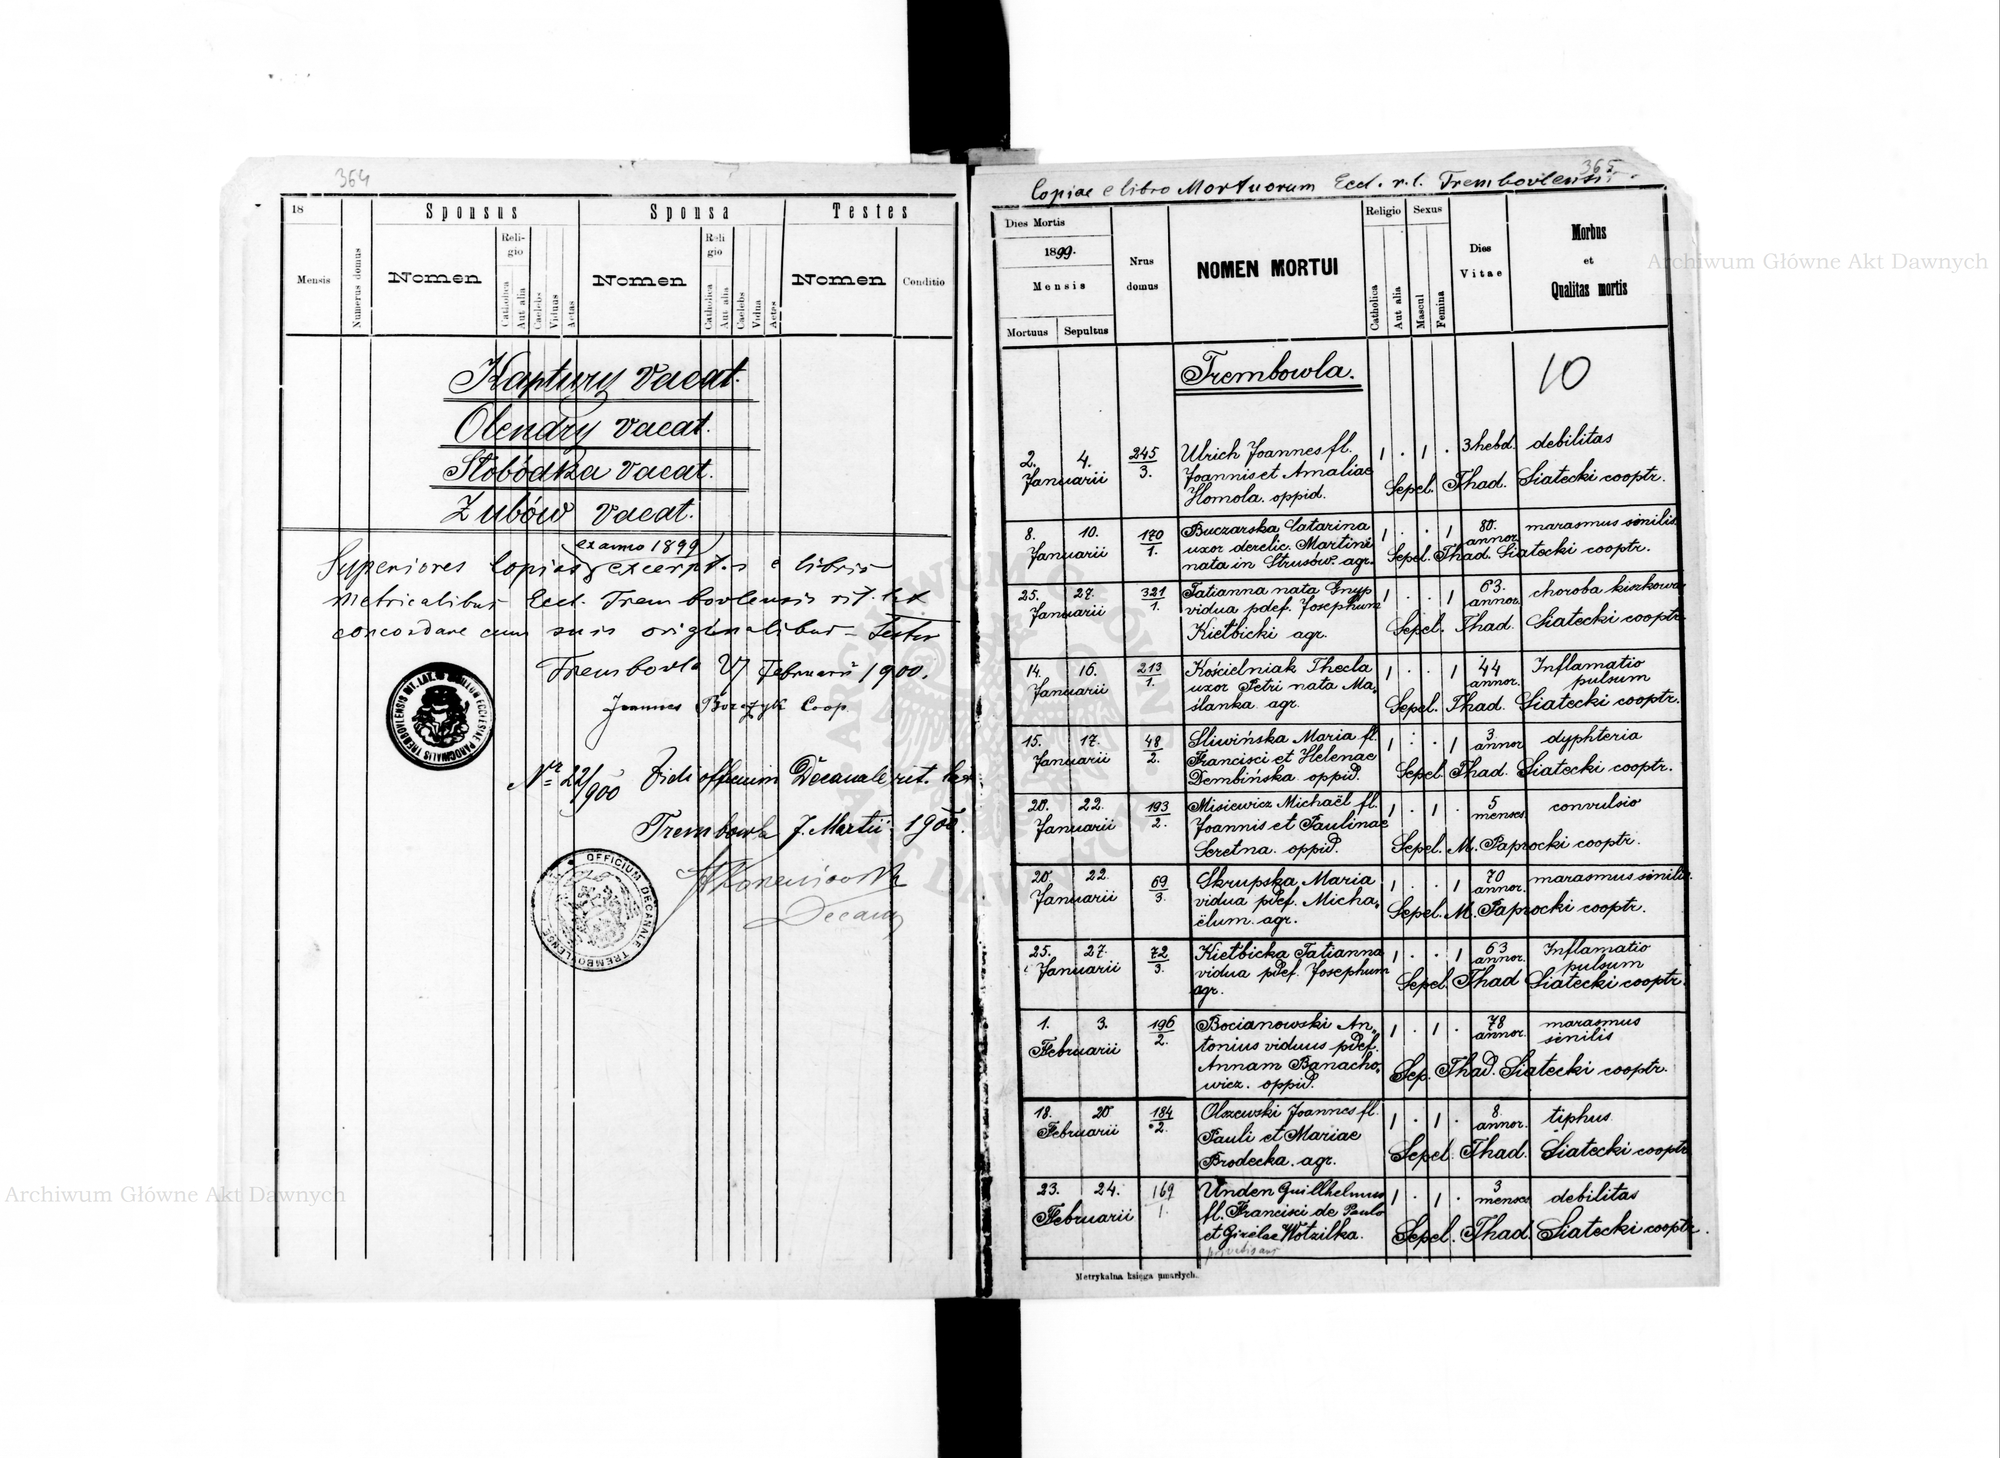 364
18
Sponsus
Sponsa
Testes
Mensis
Numerus domus
Nomen
Religio
Catholica
Aut alia
Caelebs
Viduus
Aetas
Nomen
Religio
Catholica
Aut alia
Caelebs
Vidua
Aetas
Nomen
Conditio
Kaptury vacat.
Olendry vacat.
Słobódka vacat.
Zubów vacat.
ex anno 1899
Superiores Copias excerptas e libris
Metricalibus Eccl. Trembovlensis rit. lat.
concordare cum suis originalibus testor
Trembovla Februarii 1900.
Joannes Coop.
SIGILLUM ECCLESIAE PAROCHIALIS TREMBOVLENSIS RIT. LAT.
Nr 22/900 Vidi officium Decanale rit. lat.
Trembowla 7. Martii 1900.
Decanus
OFFICIUM DECANALE TREMBOVLENSE
365
Copiae e libro Mortuorum Eccl. r. l. Trembovlensis
Dies Mortis
1899.
Mensis
Mortuus
Sepultus
Nrus domus
NOMEN MORTUI
Religio
Catholica
Aut alia
Sexus
Mascul
Femina
Dies Vitae
Morbus
et
Qualitas mortis
Trembowla.
10
2. 4. 245 Ulrich Joannes fl. 1 . 1 . 3 hebd. debilitas
Januarii 3. Joannis et Amaliae Sepel. Thad. Siatecki cooptr.
Homola. oppid.
8. 10. 170 Buczarska Catarina 1 . . 1 80. marasmus senilis
Januarii 1. uxor derelic. Martini annor. Sepel. Thad. Siatecki cooptr.
nata in Strusów. agr.
25. 27. 321 Tatianna nata Gnyp 1 . . 1 63. choroba kiszkowa
Januarii 1. vidua pdef. Josephum annor. Sepel. Thad. Siatecki cooptr.
Kiełbicki agr.
14. 16. 213 Kościelniak Thecla 1 . . 1 44 Inflamatio
Januarii 1. uxor Petri nata Ma- annor. pulsum
ślanka agr. Sepel. Thad. Siatecki cooptr.
15. 17. 48 Śliwińska Maria fl. 1 . . 1 3 dyphteria
Januarii 2. Francisci et Helenae annor. Sepel. Thad. Siatecki cooptr.
Dembińska oppid.
20. 22. 193 Misiewicz Michaël fl. 1 . 1 . 5 convulsio
Januarii 2. Joannis et Paulinae menses
Seretna. oppid. Sepel. M. Paprocki cooptr.
20. 22. 69 Skrupska Maria 1 . . 1 70 marasmus senilis.
Januarii 3. vidua pdef. Micha- annor. Sepel. M. Paprocki cooptr.
ëlum. agr.
25. 27. 72 Kiełbicka Tatianna 1 . . 1 63 Inflamatio
Januarii 3. vidua pdef. Josephum annor. pulsum
agr. Sepel. Thad Siatecki cooptr.
1. 3. 196 Bocianowski An- 1 . 1 . 78 marasmus
Februarii 2. tonius viduus pdef. annor. senilis
Annam Banacho- Sep. Thad. Siatecki cooptr.
wicz. oppid.
18. 20 184 Olszewski Joannes fl. 1 . 1 . 8 tiphus
Februarii 2. Pauli et Mariae annor.
Brodecka. agr. Sepel. Thad. Siatecki cooptr.
23. 24. 169 Unden Guillhelmus 1 . 1 . 3 debilitas
Februarii 1. fl. Francisci de Paulo menses
et Gizelae Wotzilka. Sepel. Thad. Siatecki cooptr.
Metrykalna księga umarłych.
Archiwum Główne Akt Dawnych
Archiwum Główne Akt Dawnych